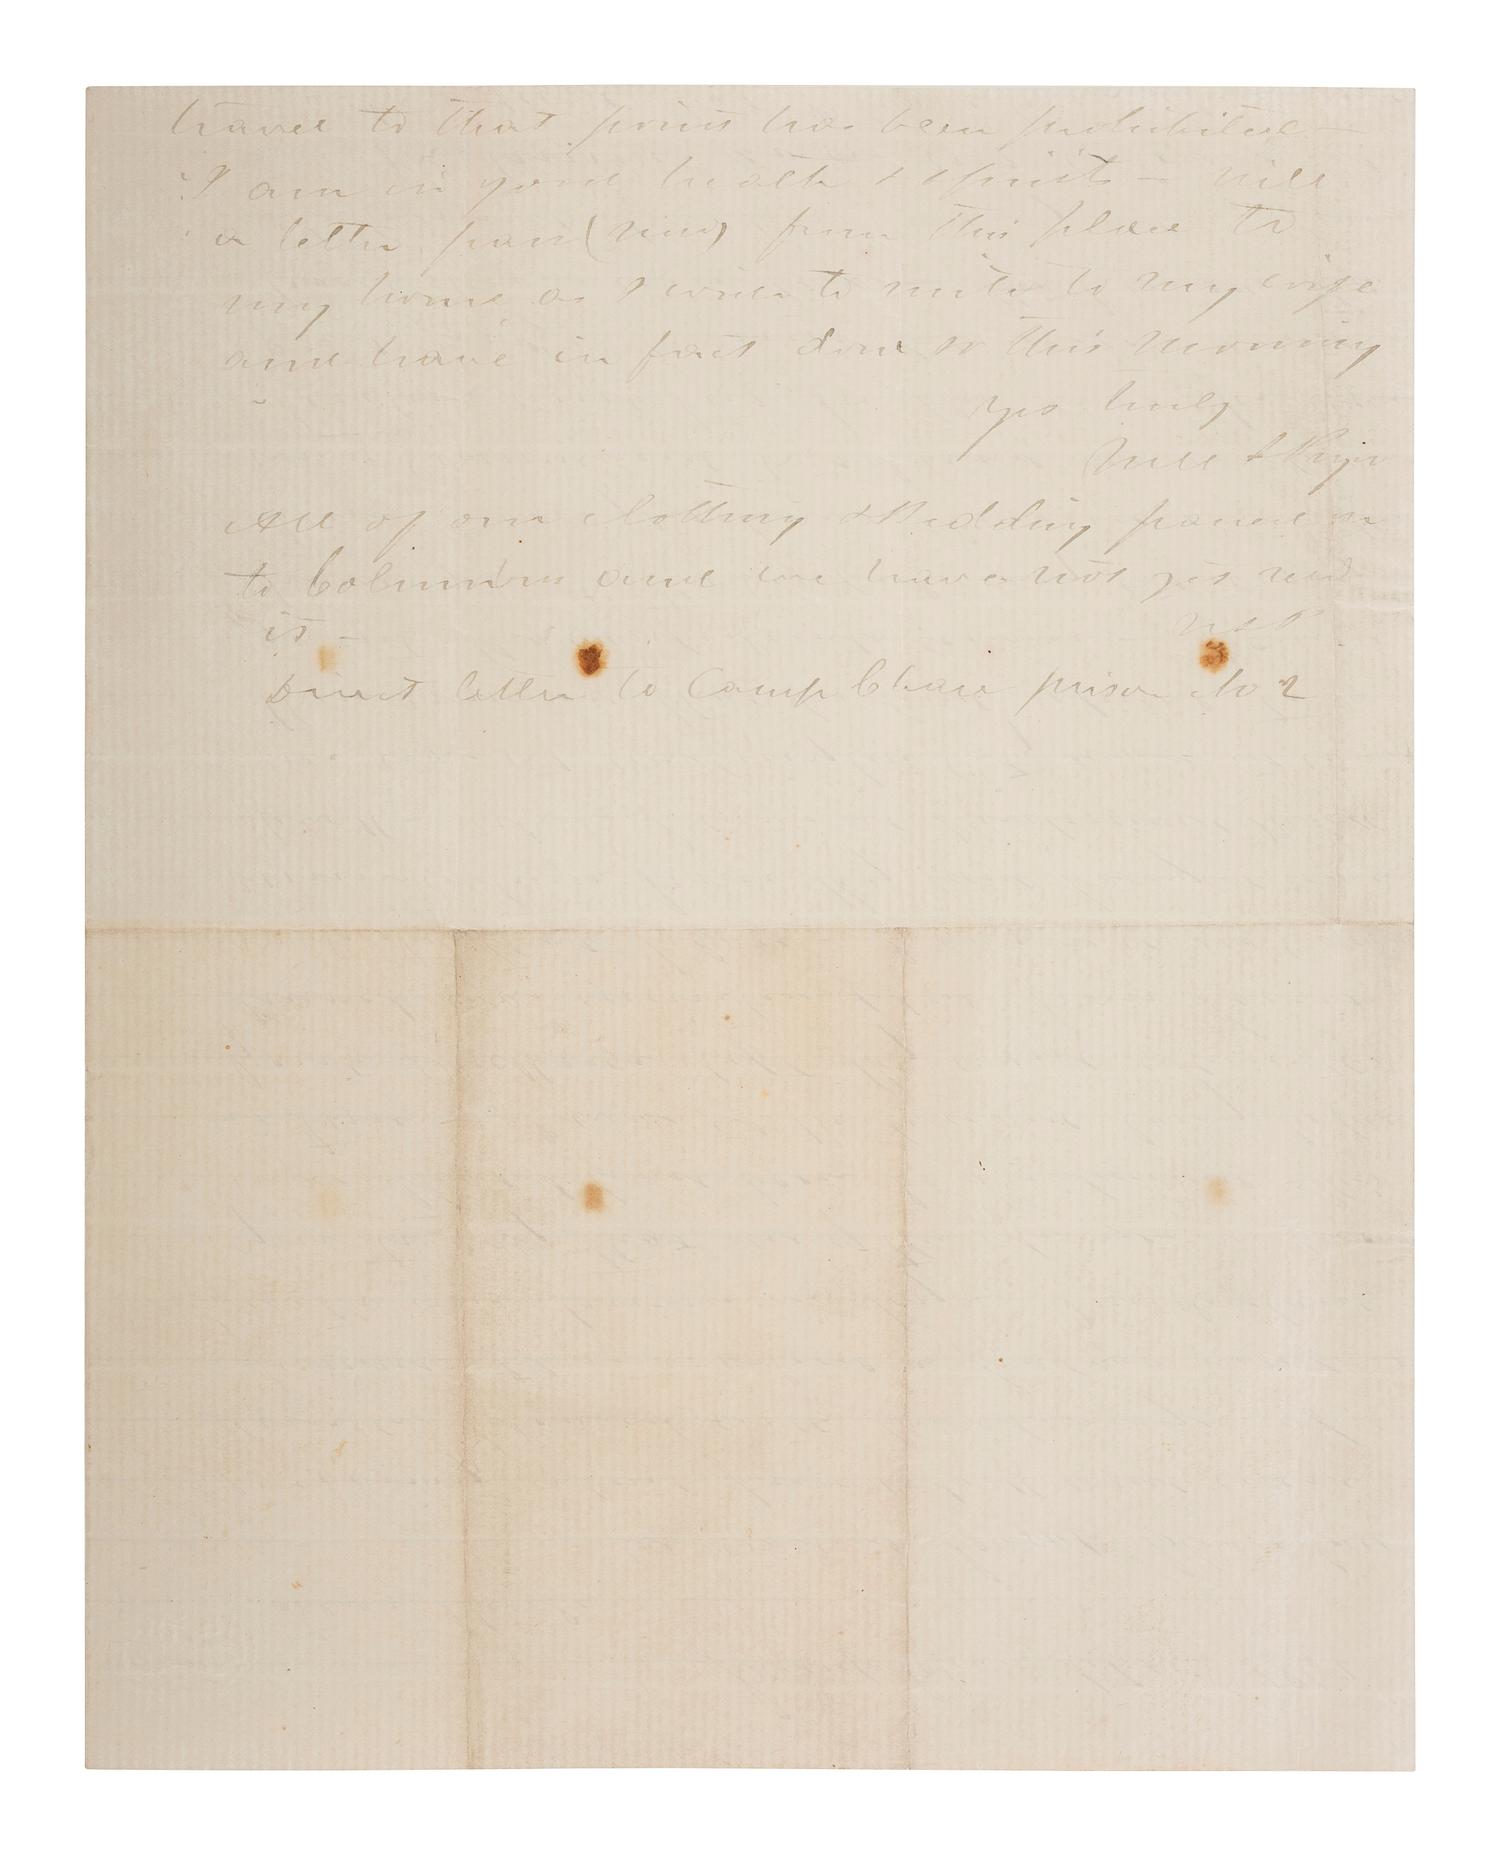 travel to that point has been prohibited —
I am in good health & spirits — will
a letter pass (now) from this place to
my home as I wish to write to my wife
and have in fact done so this morning
yrs truly
Will
All of our clothing & Bedding passed on
to Columbus and we have not yet recd
it —
Direct letter to Camp Chase prison No 2